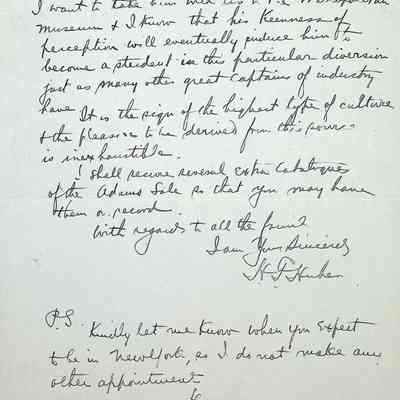 I want to take him with us to the Metropolitan
Museum & I know that his Keenness of
perception will eventually induce him to
become a student in this particular diversion
just as many other great Captains of industry
have. It is the sign of the highest type of culture
& the pleasure to be derived from this source
is inexhaustible.
I shall secure several extra Catalogues
of the Adams Sale so that you may have
them a record.
With regards to all the
I am Yours Sincerely
H. F. Huber
P.S. Kindly let me know when you expect
to be in New York, as I do not make any
other appointment